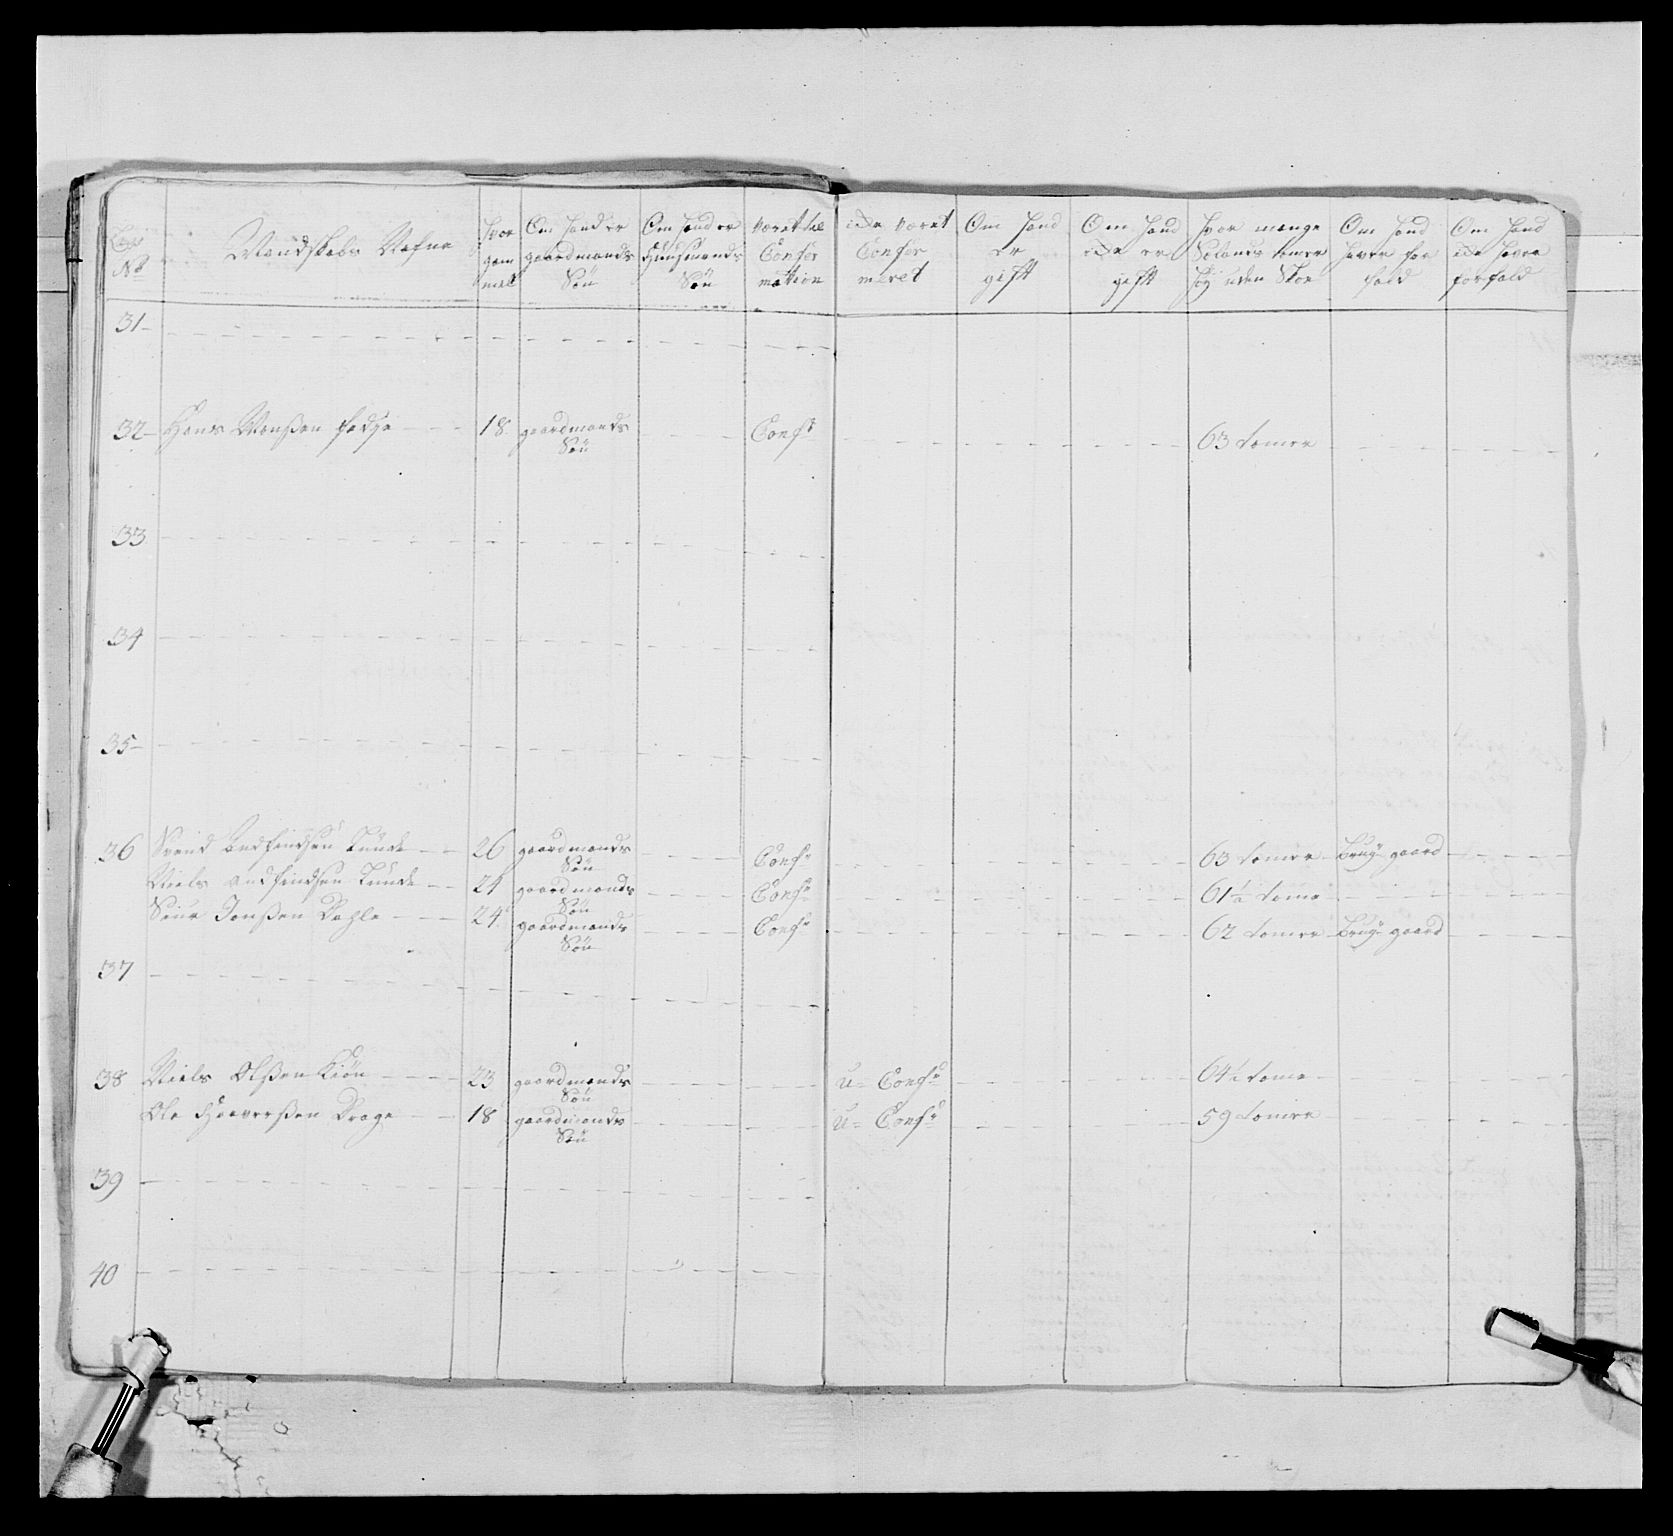 Lægs No | Mandskabs Nafne | Hvor gam mel | Om hand er gaardmands Søn | Om hand er Huusmands Søn | været til Confor mation | icke været Confor meret | Om hand er gift | Om hand icke er gift | Hvor mange Sølands tomer høÿ uden Skoe | Om hand haver for fald | Om hand icke haver forfald
31
32 Hans Monßen 18 gaardmands Søn Conf: 63 tomer
33
34
35
36 Svend Andfindsen Lunde 26 gaardmands Søn Conf: 63 tomer Brug gaard
Niels Andfindsen Lunde 21 gaardmands Søn Conf: 61½ tome
Siur Jonßen 24 gaardmands Søn Conf: 62 tomer Brug gaard
37
38 Niels Olßen 23 gaardmands Søn U= Conf: 64½ tome
Ole 18 gaardmands Søn U= Conf: 59 tomer
39
40